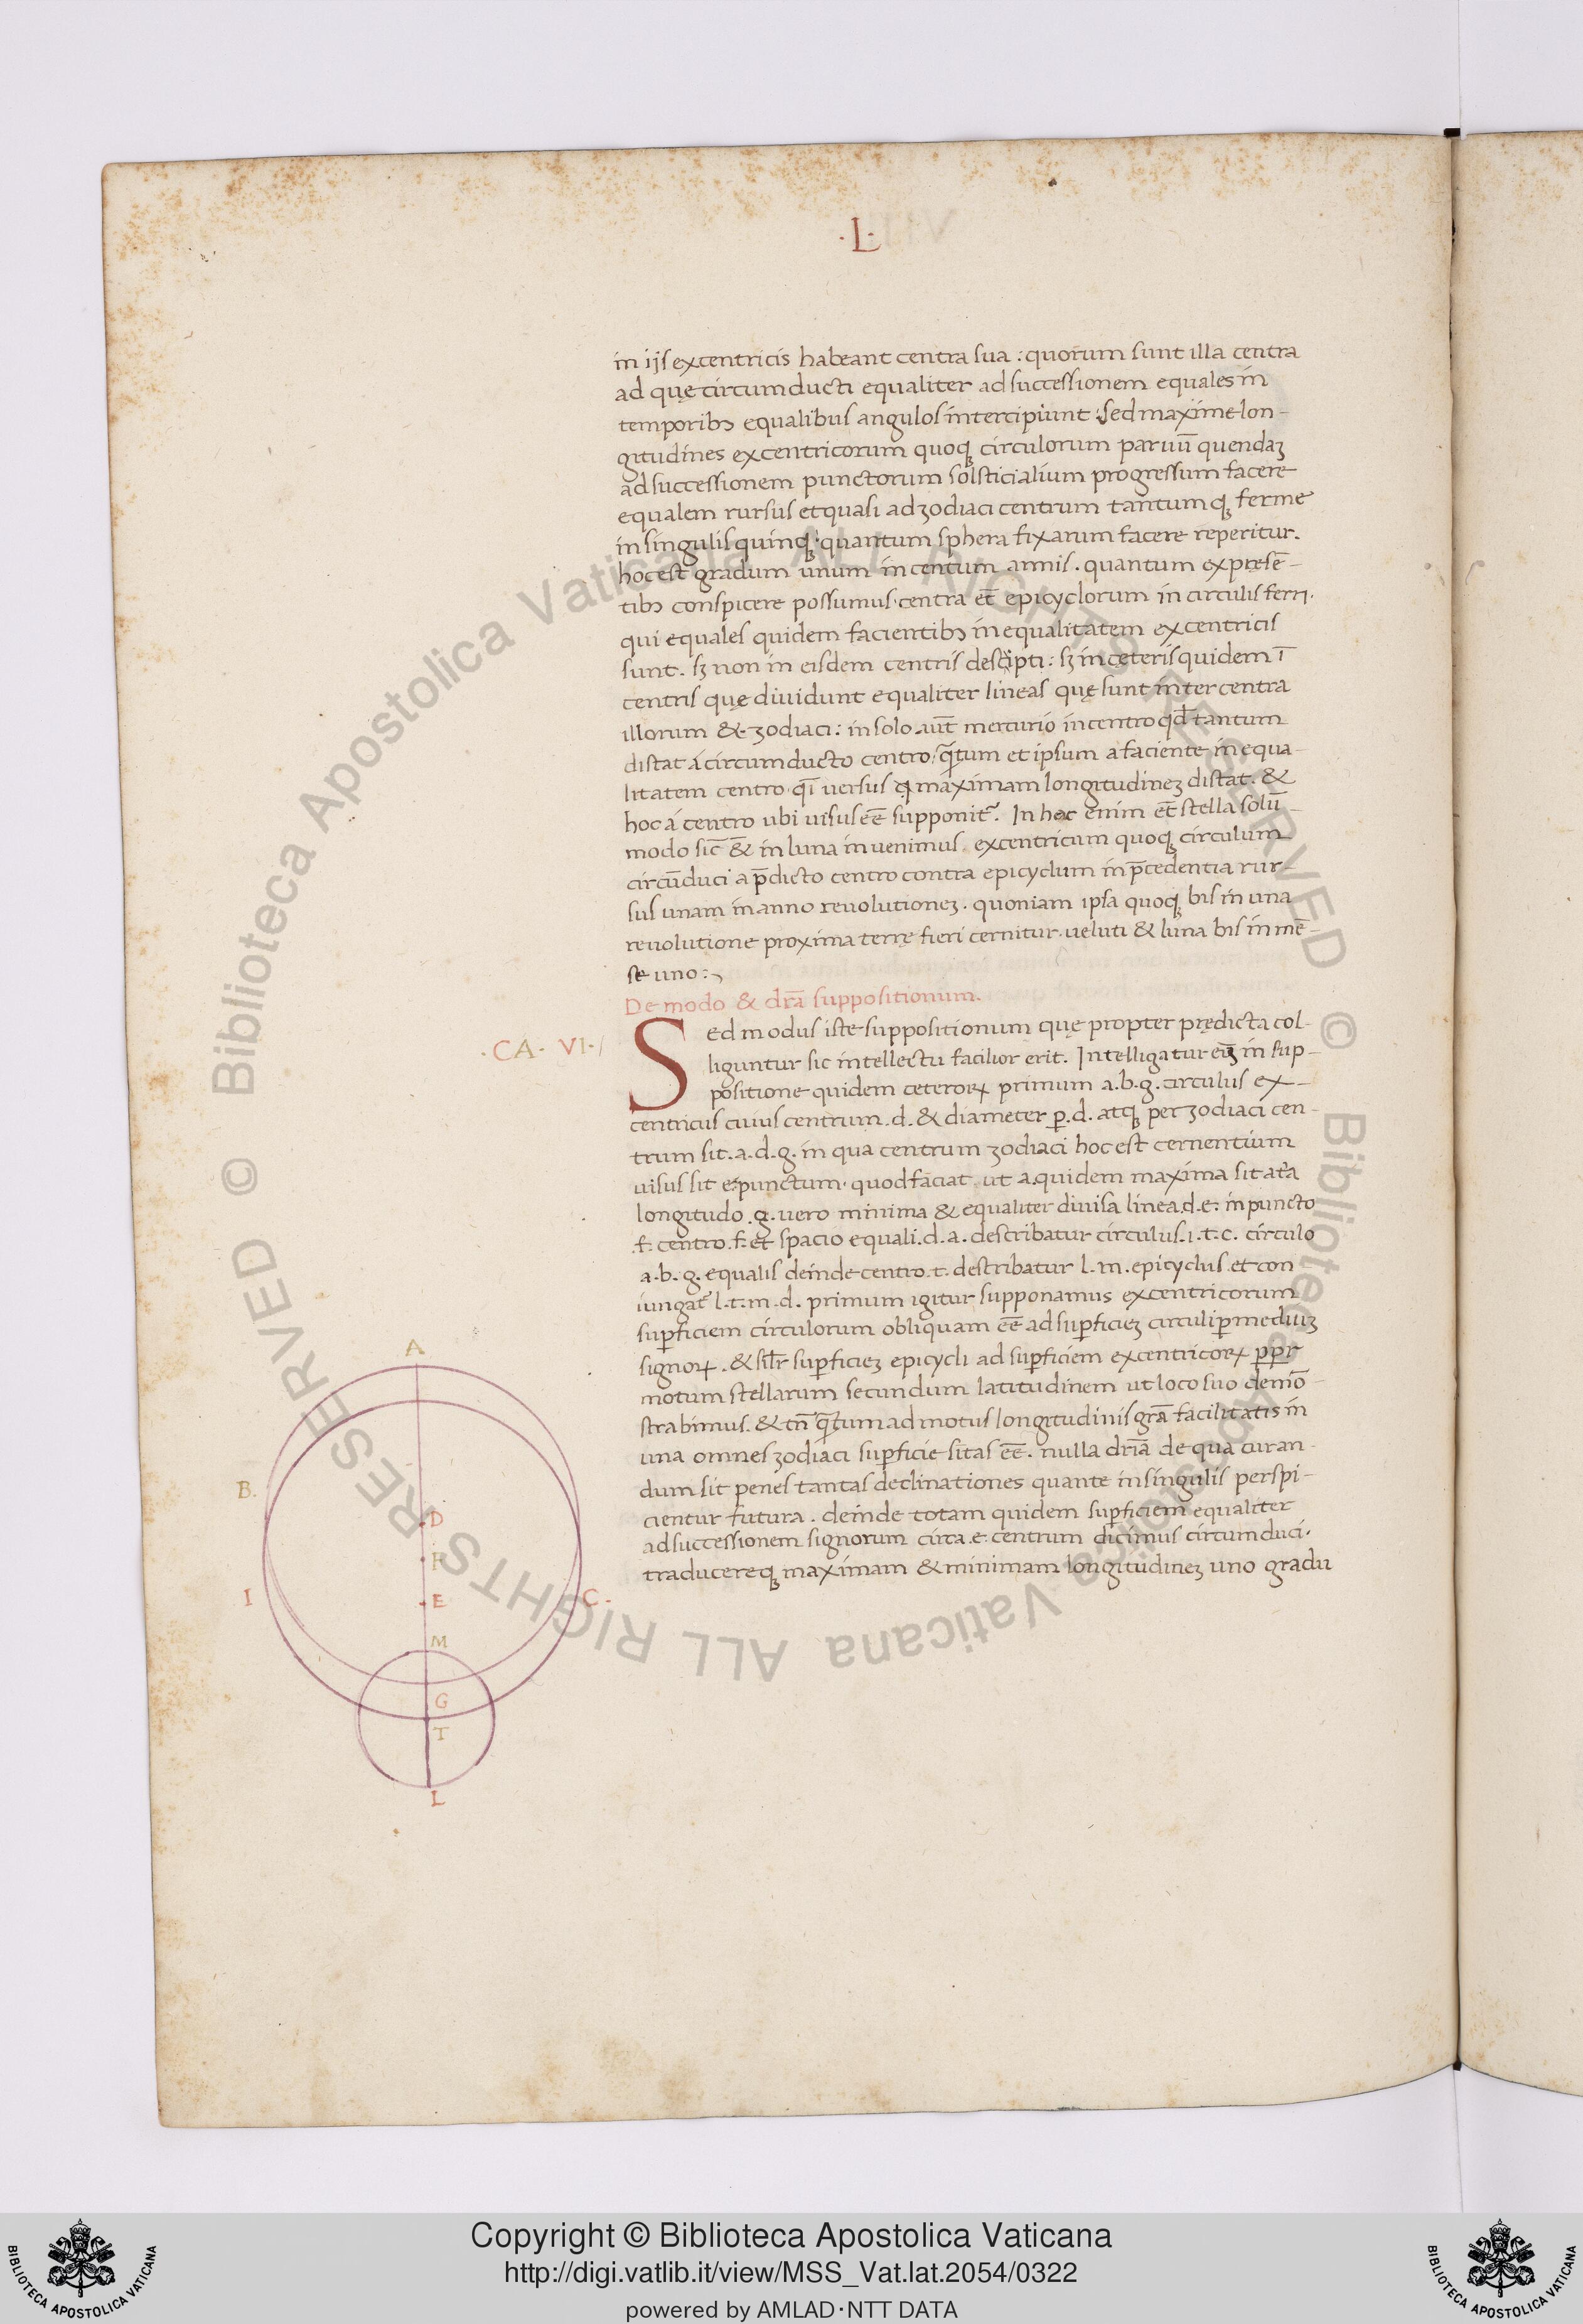 ·L·
in ijs excentricis habeant centra sua : quorum sunt illa centra
ad quę circumducti equaliter ad successionem equales in
temporibꝫ equalibus angulos intercipiunt : Sed maxime lon-
gitudines excentricorum quoqꝫ circulorum paruū quendaꝫ
ad successionem punctorum solsticialium progressum facere
equalem rursus et quasi ad zodiaci centrum tantumqꝫ ferme
in singulis quinqꝫ : quantum sphera fixarum facere reperitur.
hoc est gradum unum in centum annis . quantum ex presē-
tibꝫ conspicere possumus · centra et̄ epicyclorum in circulis ferri .
qui equales quidem facientibꝫ inequalitatem excentricis
sunt . sꝫ non in eisdem centris descripti : sꝫ in ceteris quidem ī
centris quę diuidunt equaliter lineas quę sunt inter centra
illorum & zodiaci : in solo aut̄ mercurio in centro qd̄ tantum
distat á circumducto centro / q̄tum et ipsum a faciente inequa-
litatem centro · qͣi uersus maximam longitudineꝫ distat . &
hoc á centro ubi uisus eē supponit᷑ . In hac enim et̄ stella solū-
modo sic̄ & in luna inuenimus . excentricum quoqꝫ circulum
circūduci a p̄dicto centro contra epicyclum in p̄cedentia rur-
sus unam in anno reuolutioneꝫ . quoniam ipsa quoqꝫ bis in una
reuolutione proxima terrę fieri cernitur · ueluti & luna bis in mē-
se uno :~
De modo & dr̄a suppositionum .
·CA· VI·/
Sed modus iste suppositionum quę propter prędicta col-
liguntur sic intellectu facilior erit . Intelligatur eiꝫ in sup-
positione quidem ceteroꝝ primum a . b . g . circulus ex-
centricus cuius centrum . d . & diameter ꝑ . d . atqꝫ per zodiaci cen-
trum sit . a . d . g . in qua centrum zodiaci hoc est cernentium
uisus sit e · punctum · quod faciat ut a . quidem maxima sit
longitudo . g . uero minima & equaliter diuisa linea . d . e . in puncto
. f . centro . f . et spacio equali . d . a . describatur circulus . i . t . c . circulo
a . b . g . equalis deinde centro . t . describatur l . m . epicyclus . et con
iungat᷑ l . t . m . d . primum igitur supponamus excentricorum
suꝑficiem circulorum obliquam eē ad suꝑficieꝫ circuli ꝑ mediuꝫ
signoꝝ . & silr̄ suꝑficieꝫ epicycli ad suꝑficiem excentricoꝝ ꝓpr̄
motum stellarum secundum latitudinem ut loco suo demō-
strabimus . & tn̄ q̄tum ad motus longitudinis gr̄a facilitatis in
una omnes zodiaci suꝑficie sitas eē . nulla driā de qua curan-
dum sit penes tantas declinationes quante in singulis perspi-
cientur futura . deinde totam quidem suꝑficiem equaliter
ad successionem signorum circa . e . centrum dicimus circumduci .
traducereqꝫ maximam & minimam longitudineꝫ uno gradu
A
B.
D
F
I
E
C.
M
G
T
L
© Biblioteca Apostolica Vaticana ALL RIGHTS RESERVED
© Biblioteca Apostolica Vaticana ALL RIGHTS RESERVED
Copyright © Biblioteca Apostolica Vaticana
http://digi.vatlib.it/view/MSS_Vat.lat.2054/0322
powered by AMLAD·NTT DATA
BIBLIOTECA APOSTOLICA VATICANA
BIBLIOTECA APOSTOLICA VATICANA